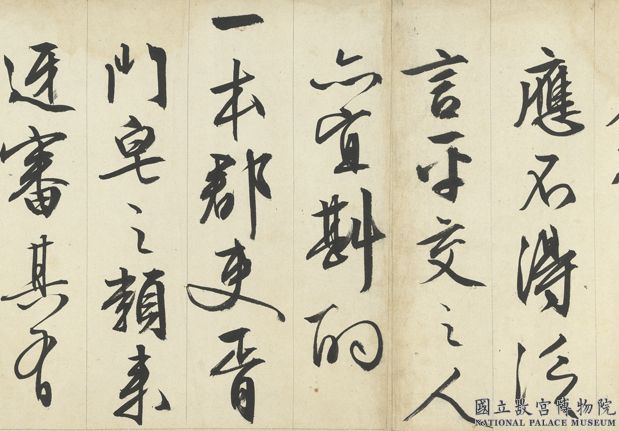 應不得泛
言平交之人
亦宜斟酌
一本郡吏胥
門皂之類来
迓審其有
國立故宮博物院
NATIONAL PALACE MUSEUM